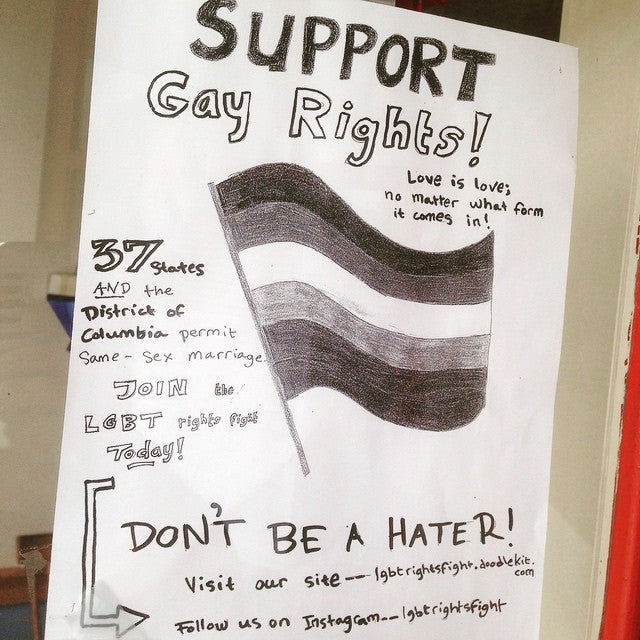 SUPPORT
Gay Rights!
Love is love;
no matter what form
it comes in!
37 states
AND the
District of
Columbia permit
Same-sex marriage.
JOIN the
LGBT rights fight
Today!
DON'T BE A HATER!
Visit our site--lgbtrightsfight.doodlekit.
com
Follow us on Instagram--lgbtrightsfight